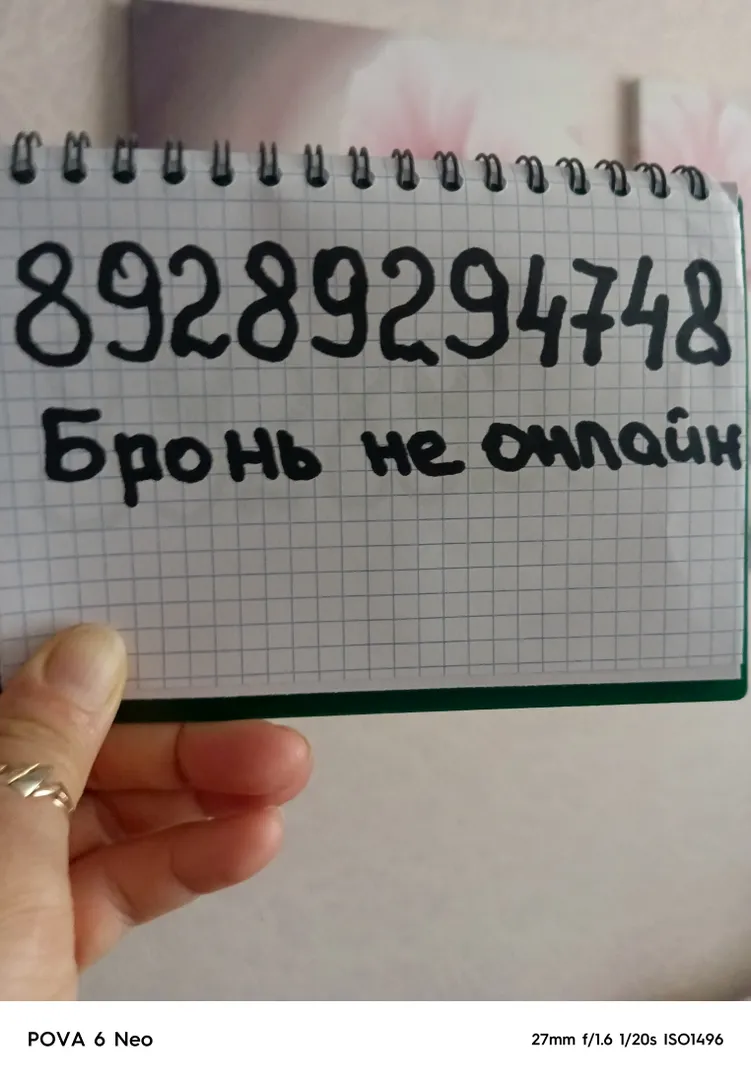 89289294748
Бронь не онлайн
POVA 6 Neo
27mm f/1.6 1/20s ISO1496